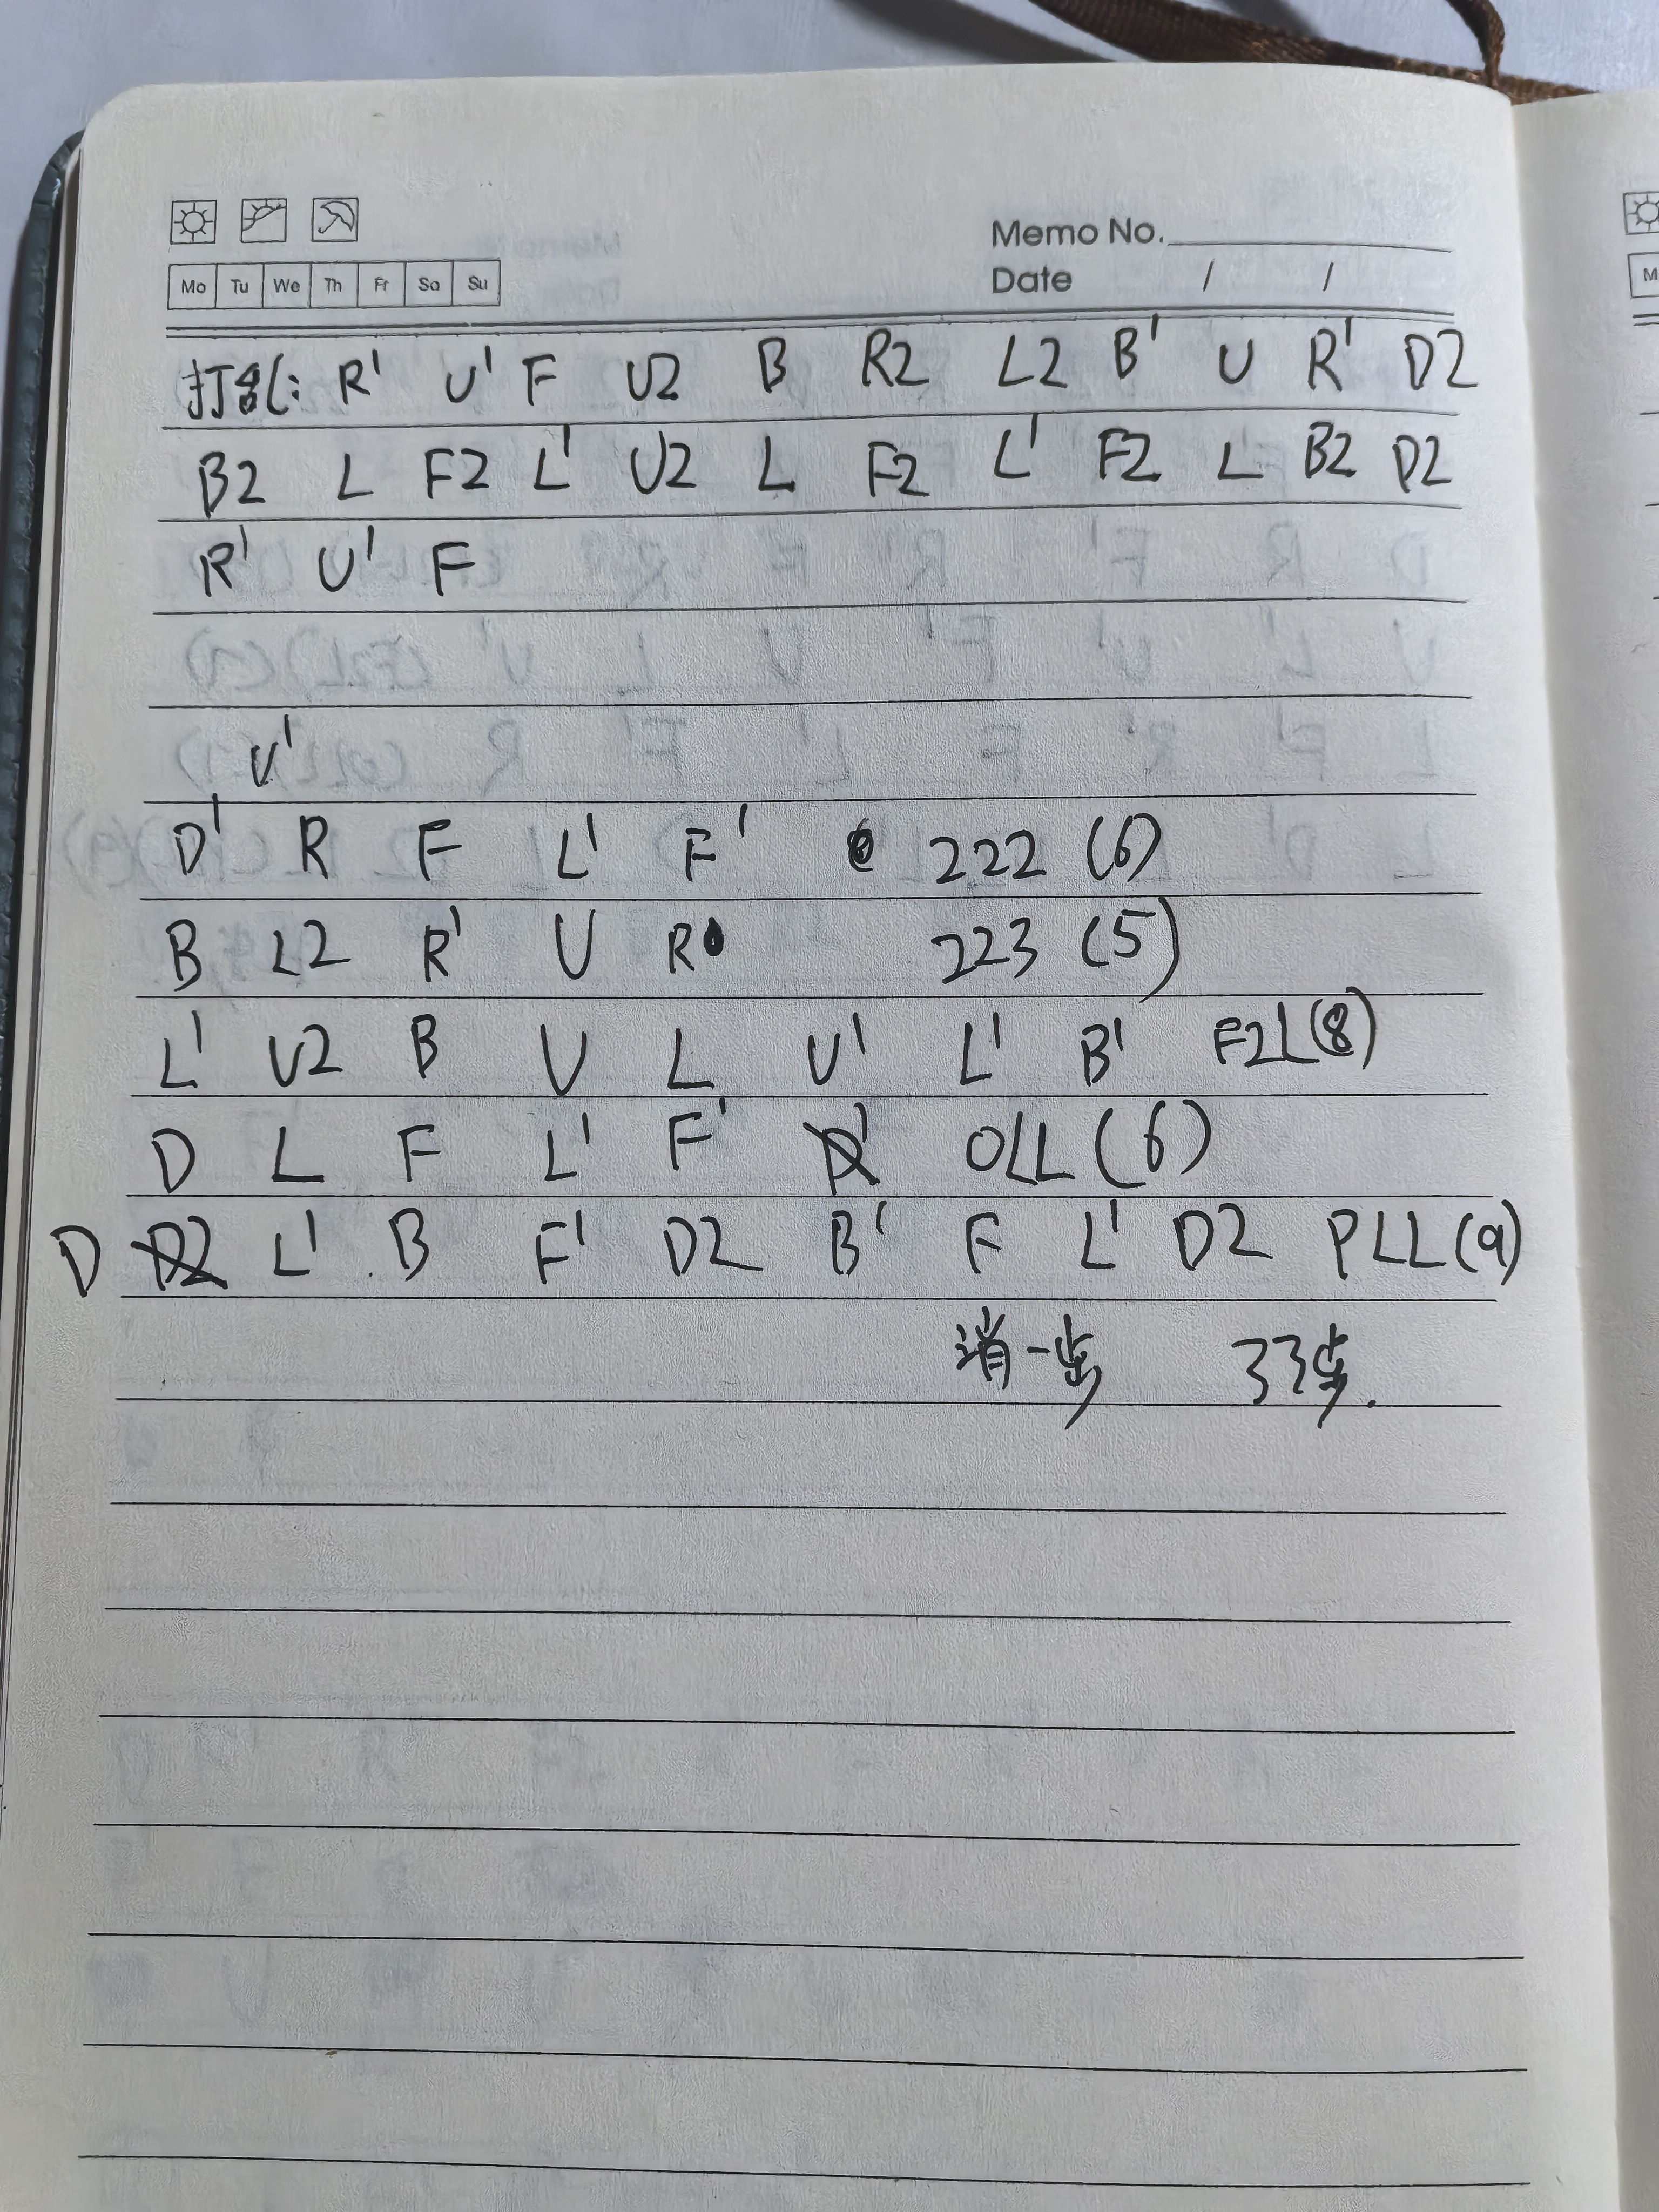 Memo No.
Mo Tu We Th Fr Sa Su
Date / /
打乱: R' U' F U2 B R2 L2 B' U R' D2
B2 L F2 L' U2 L F2 L' F2 L B2 D2
R' U' F
U'
D' R F L' F' 222 (6)
B L2 R' U R 223 (5)
L' U2 B U L U' L' B' F2L(8)
D L F L' F' D' OLL (6)
D D2 L' B F' D2 B' F L' D2 PLL(9)
消一步 33步.